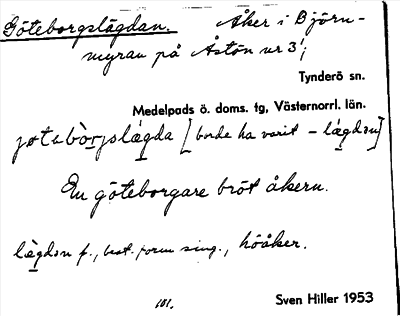 Göteborgslägdan. Åker i Björn-
myran på Åstön nr 3¹;
Tynderö sn.
Medelpads ö. doms. tg, Västernorrl. län.
jøtebòrjslägda [borde ha varit – lägdən]
En göteborgare bröt åkern.
lägdən f., best. form sing., höåker.
101.
Sven Hiller 1953